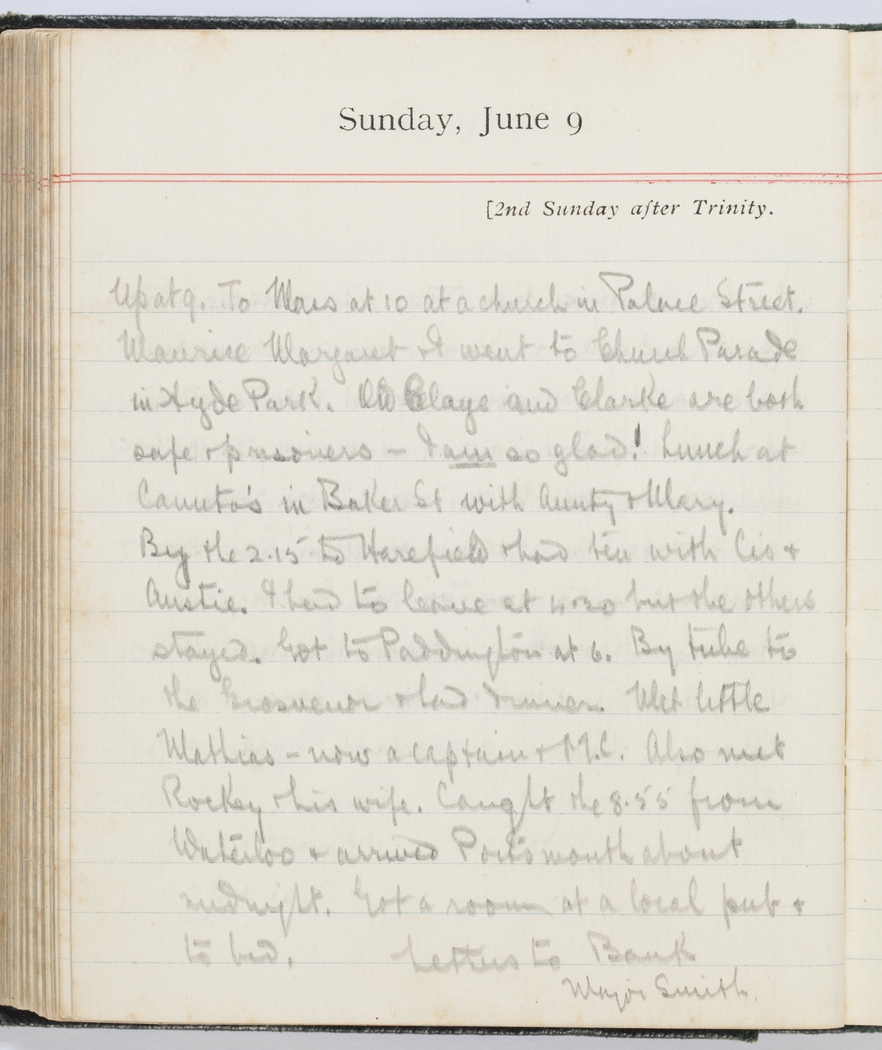 Sunday, June 9
[2nd Sunday after Trinity.
Up at 9. To Mass at 10 at a church in Palace Street.
Maurice Margaret & I went to Church Parade
in Hyde Park. Old Clays and Clarke are both
safe & prisoners – I am so glad! Lunch at
Canuto's in Baker St with Aunty & Mary.
By the 2.15 to Harefield & had tea with Cis &
Austie. I had to leave at 4.30 but the others
stayed. Got to Paddington at 6. By tube to
the Grosvenor & had dinner. Met little
Mathias – now a captain & M.C. Also met
Rockey & his wife. Caught the 8.55 from
Waterloo & arrived Portsmouth about
midnight. Got a room at a local pub &
to bed. Letters to Bank
Major Smith.